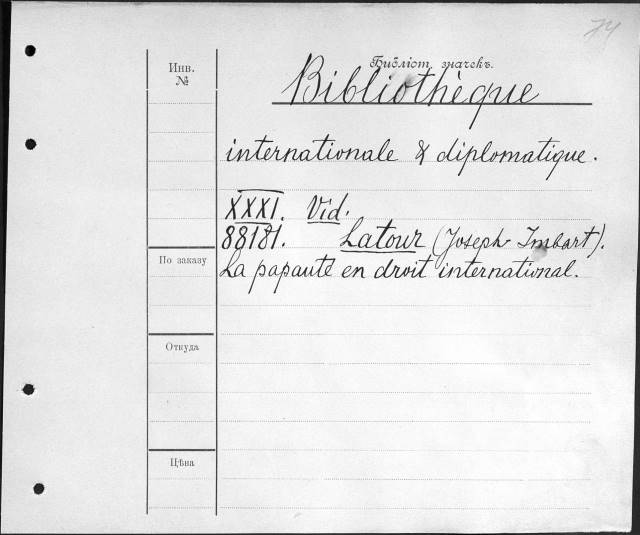 74
Библіот. значекъ.
Инв.
№
Bibliothèque
internationale & diplomatique.
XXXI. Vid.
88181. Latour (Joseph Imbart).
По заказу
La papauté en droit international.
Откуда
Цѣна